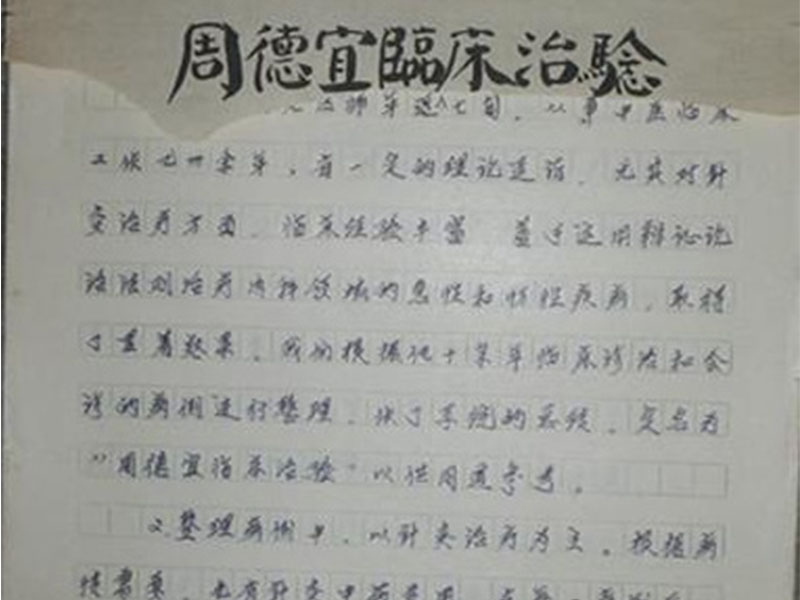 周德宜臨床治驗
医师年近七旬，从事中医临床
工作七十余年，有一定的理论造诣，尤其对针
灸治疗方面，临床经验丰富 善于运用辩证论
治法则治疗内科领域的急性和慢性疾病，取得
了显著效果，我们根据他十某年临床诊治和会
诊的病例进行整理，做了系统的总结，定名为
"周德宜临床治验"以供同道参考。
又整理病例中，以针灸治疗为主，根据病
情需要，也有针灸中药